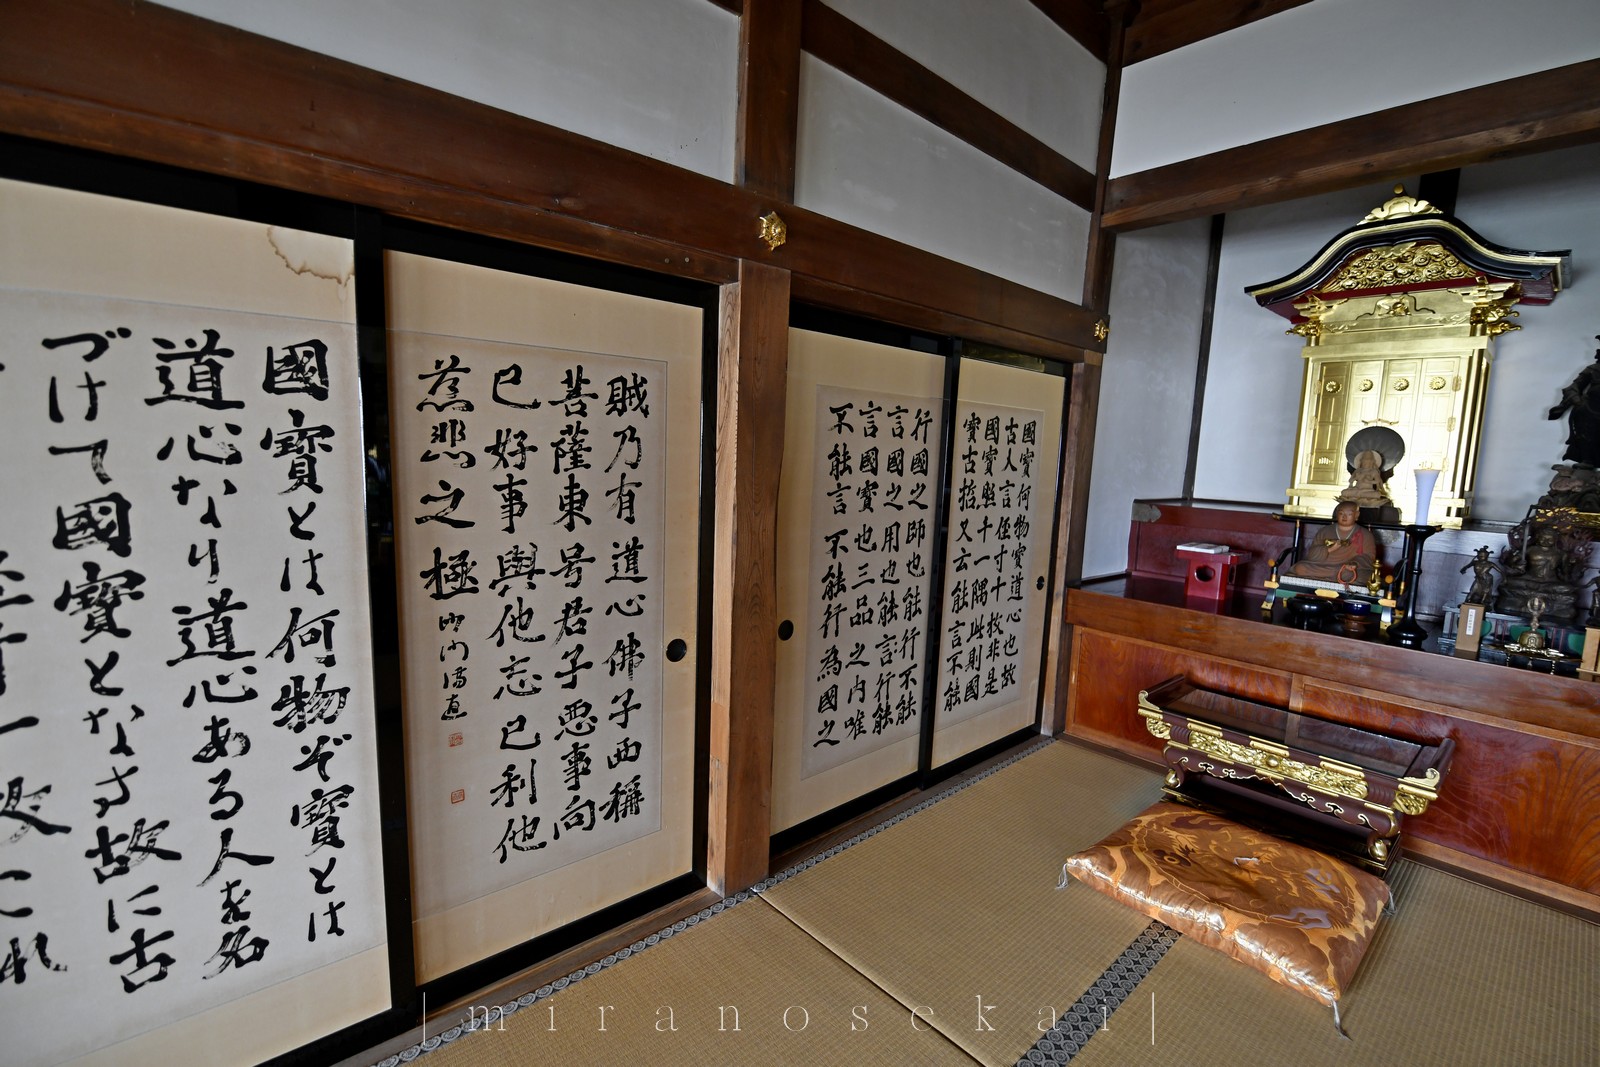 國寶何物寶道心也故
古人言徑寸十枚非是
國寶照千一隅此則國
寶古哲又云能言不能
行國之師也能行不能
言國之用也能言行能
言國寶也三品之内唯
不能言不能行為國之
賊乃有道心佛子西稱
菩薩東号君子悪事向
己好事與他忘己利他
慈悲之極
國寶とは何物ぞ寶とは
道心なり道心ある人を名
づけて國寶となす故に古
|miranosekai|